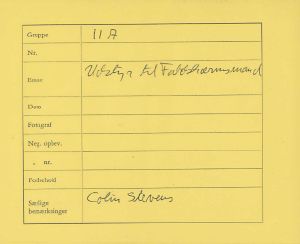 Gruppe 11 A
Nr.
Emne Udstyr til Faldskærmsmænd
Dato
Fotograf
Neg. opbev.
„ nr.
Forbehold
Særlige Colin Stevens
bemærkninger